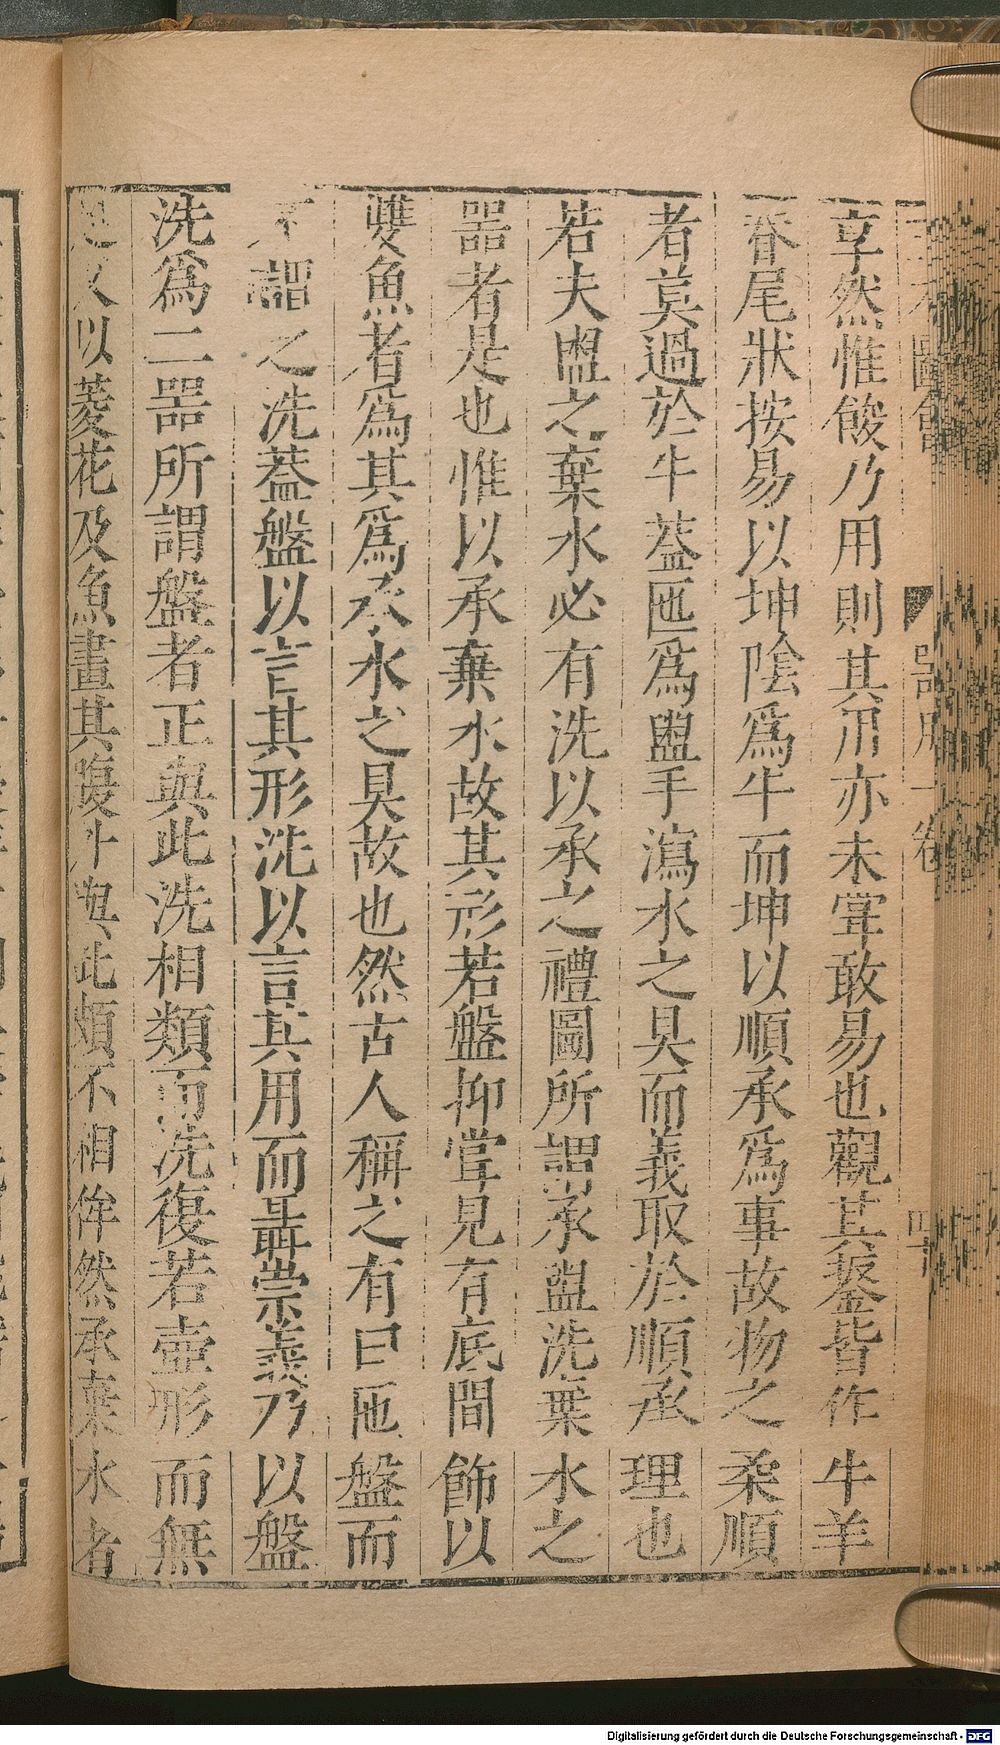 享然惟餕乃用則其用亦未嘗敢易也觀其鋬皆作牛羊
脊尾狀按易以坤陰爲牛而坤以順承爲事故物之柔順
者莫過於牛葢匜爲盥手瀉水之具而義取於順承理也
若夫盥之棄水必有洗以承之禮圖所謂承盥洗棄水之
器者是也惟以承棄水故其形若盤抑嘗見有底間飾以
雙魚者爲其爲承水之具故也然古人稱之有曰匜盤而
不謂之洗葢盤以言其形洗以言其用而聶崇義乃以盤
洗爲二器所謂盤者正與此洗相類而洗復若壺形而無
足又以菱花及魚畫其腹外與此頗不相侔然承棄水者
器用一卷
四十
Digitalisierung gefördert durch die Deutsche Forschungsgemeinschaft - DFG